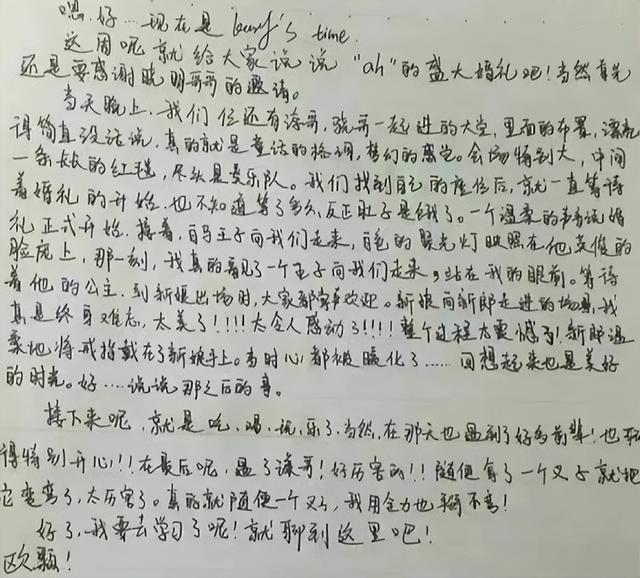 嗯,好…现在是 buny's time.
这周呢,就给大家说说“ah”的盛大婚礼吧!当然首先
还是要感谢晓明哥哥的邀请。
当天晚上,我们 位还有涛哥,骁哥一起进的大堂,里面的布置,漂亮
得简直没话说,真的就是童话的格调,梦幻的感觉。会场特别大,中间
一条长长的红毯,尽头是奏乐队。我们找到自己的座位后,就一直等待
着婚礼的开始.也不知道等了多久,反正肚子是饿了。一个温柔的声音说婚
礼正式开始.接着,白马王子向我们走来,白色的聚光灯映照在他英俊的
脸庞上,那一刻,我真的看见了一个王子向我们走来,站在我的眼前。等待
着他的公主.到新娘出场时,大家都 欢迎。新娘向新郎走进的场景,我
真是终身难忘,太美了!!!!太令人感动了!!!!整个过程太震憾了!新郎温
柔地将戒指戴在了新娘手上。当时心都被暖化了……回想起来也是美好
的时光。好…说说那之后的事。
接下来呢,就是吃、喝、玩、乐了.当然,在那天也遇到了好多前辈!也玩
得特别开心!!在最后呢,遇了涛哥!好厉害的!!随便拿了一个叉子就把
它变弯了,太厉害了。真的就随便一个叉子,我用全力也掰不弯!
好了,我要去学习了呢!就聊到这里吧!
欧颗!